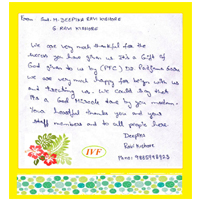 From Smt. M. DEEPIKA RAVI KISHORE
G. RAVI KISHORE
We are very much thankful for the
success you have given us It's a Gift of
God given to us by (PFC) Dr. Padmaja
we are very much happy for being with us
and treating us. We could say that
It's a God Miracle done by you madam.
Your thankful thanks you and your
staff members and to all people here.
Deepika
Ravi Kishore
IVF